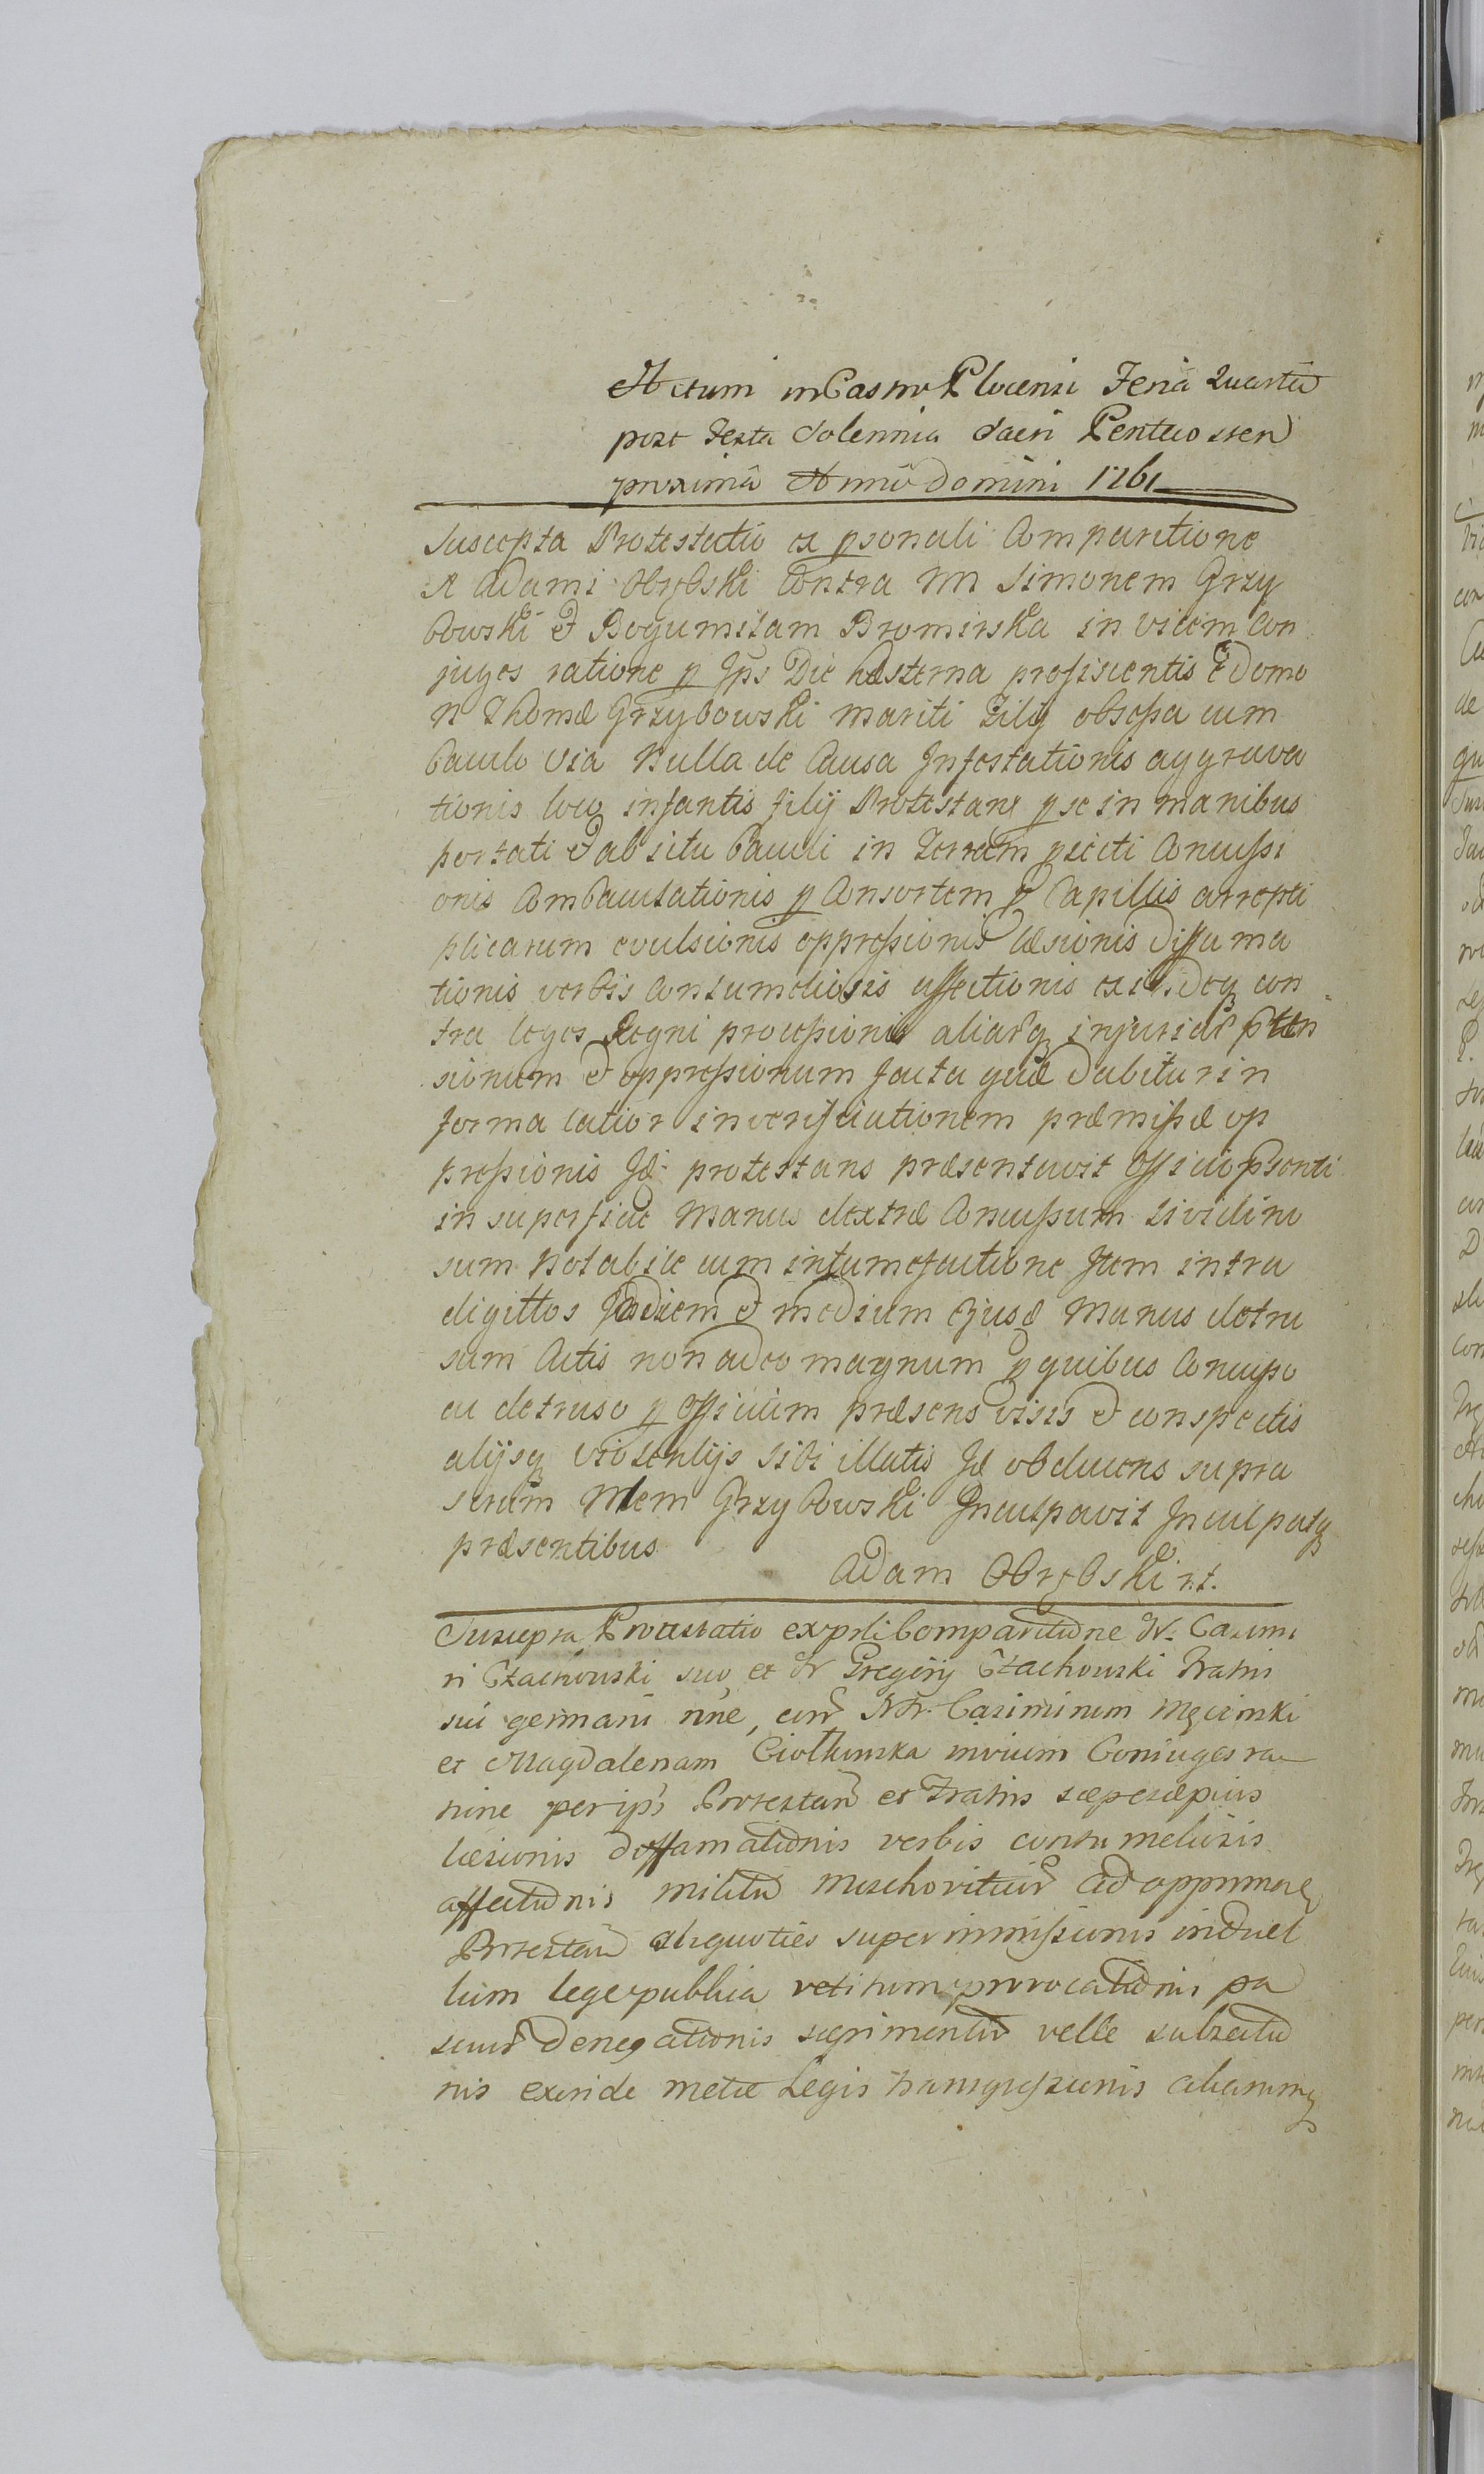 Actum in Castro Plocensi Feria Quarta
post Festa Solennia Sacri Pentecosten
proxima Anno Domini 1761
Suscepta Protestatio ex psonali Comparitione
N Adami Obrębski Contra NN Simonem Grzy
bowski et Bogumilam Bromirska invicem Con
juges ratione p Ips Die hesterna profisicentis e Domo
N Thomæ Grzybowski mariti filij obsessa cum
baculo via Nulla de Causa Infestationis aggrava
tionis loco infantis filij Protestane p se in manibus
portati et ab situ baculi in terram pjeciti Concussi
onis Combaculationis p Consortem p Capillis arrepti
plicarum evulsionis oppressionis læsionis Diffama
tionis verbis Contumeliosis affectionis exindeq con
tra leges Regni processionis aliarq injuriar ptten
sionum et oppressionum facta quæ dabitur in
forma latiori in verificationem præmissæ op
pressionis Id protestans præsentavit Officio psenti
in superficie Manus dextræ Concussum lividino
sum Notabile cum intumefactione Item intra
digittos Indicem et medium ejusd Manus detru
sum Cutis non adeo magnum p quibus Concusso
ac detruso p Officium præsens visis et conspectis
alijsq violentijs sibi illatis Id obducens supra
scrum Nlem Grzybowski Inculpavit Inculpatq
præsentibus
Adam Obrębski r.t.
Suscepta Protestatio ex psli Comparitione N. Casimi
ri Czachowski suo et N Gregorij Czachowski Fratris
sui germani nne, cont NN. Casimirum Męcinski
et Magdalenam Ciołkowska invicem Coniuges ra
tione per ips Protestan et Fratris sæpesæpius
læsionis Deffamationis verbis contumeliosis
affectionis militu Moschoviticur ad opprimere
Protestan aliquoties superimmissionis in duel
lum lege publica vetitum provocationis pa
scuor Denegationis segrimentor velle subsectio
nis exinde metæ Legis transgressionis aliarumq